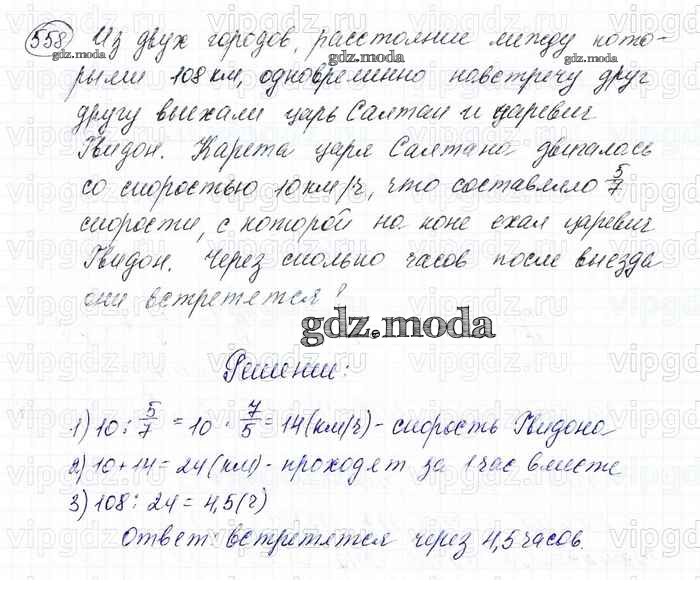 558 Из двух городов, расстояние между кото-
рыми 108 км, одновременно навстречу друг
другу выехали царь Салтан и царевич
Гвидон. Карета царя Салтана двигалась
со скоростью 10 км/ч, что составляло 5/7
скорости, с которой на коне ехал царевич
Гвидон. Через сколько часов после выезда
они встретятся?
gdz.moda
gdz.moda
Решение:
1) 10 : 5/7 = 10 · 7/5 = 14 (км/ч) - скорость Гвидона
2) 10 + 14 = 24 (км) - проходят за 1 час вместе
3) 108 : 24 = 4,5 (ч)
Ответ: встретятся через 4,5 часов.
vipgdz.ru